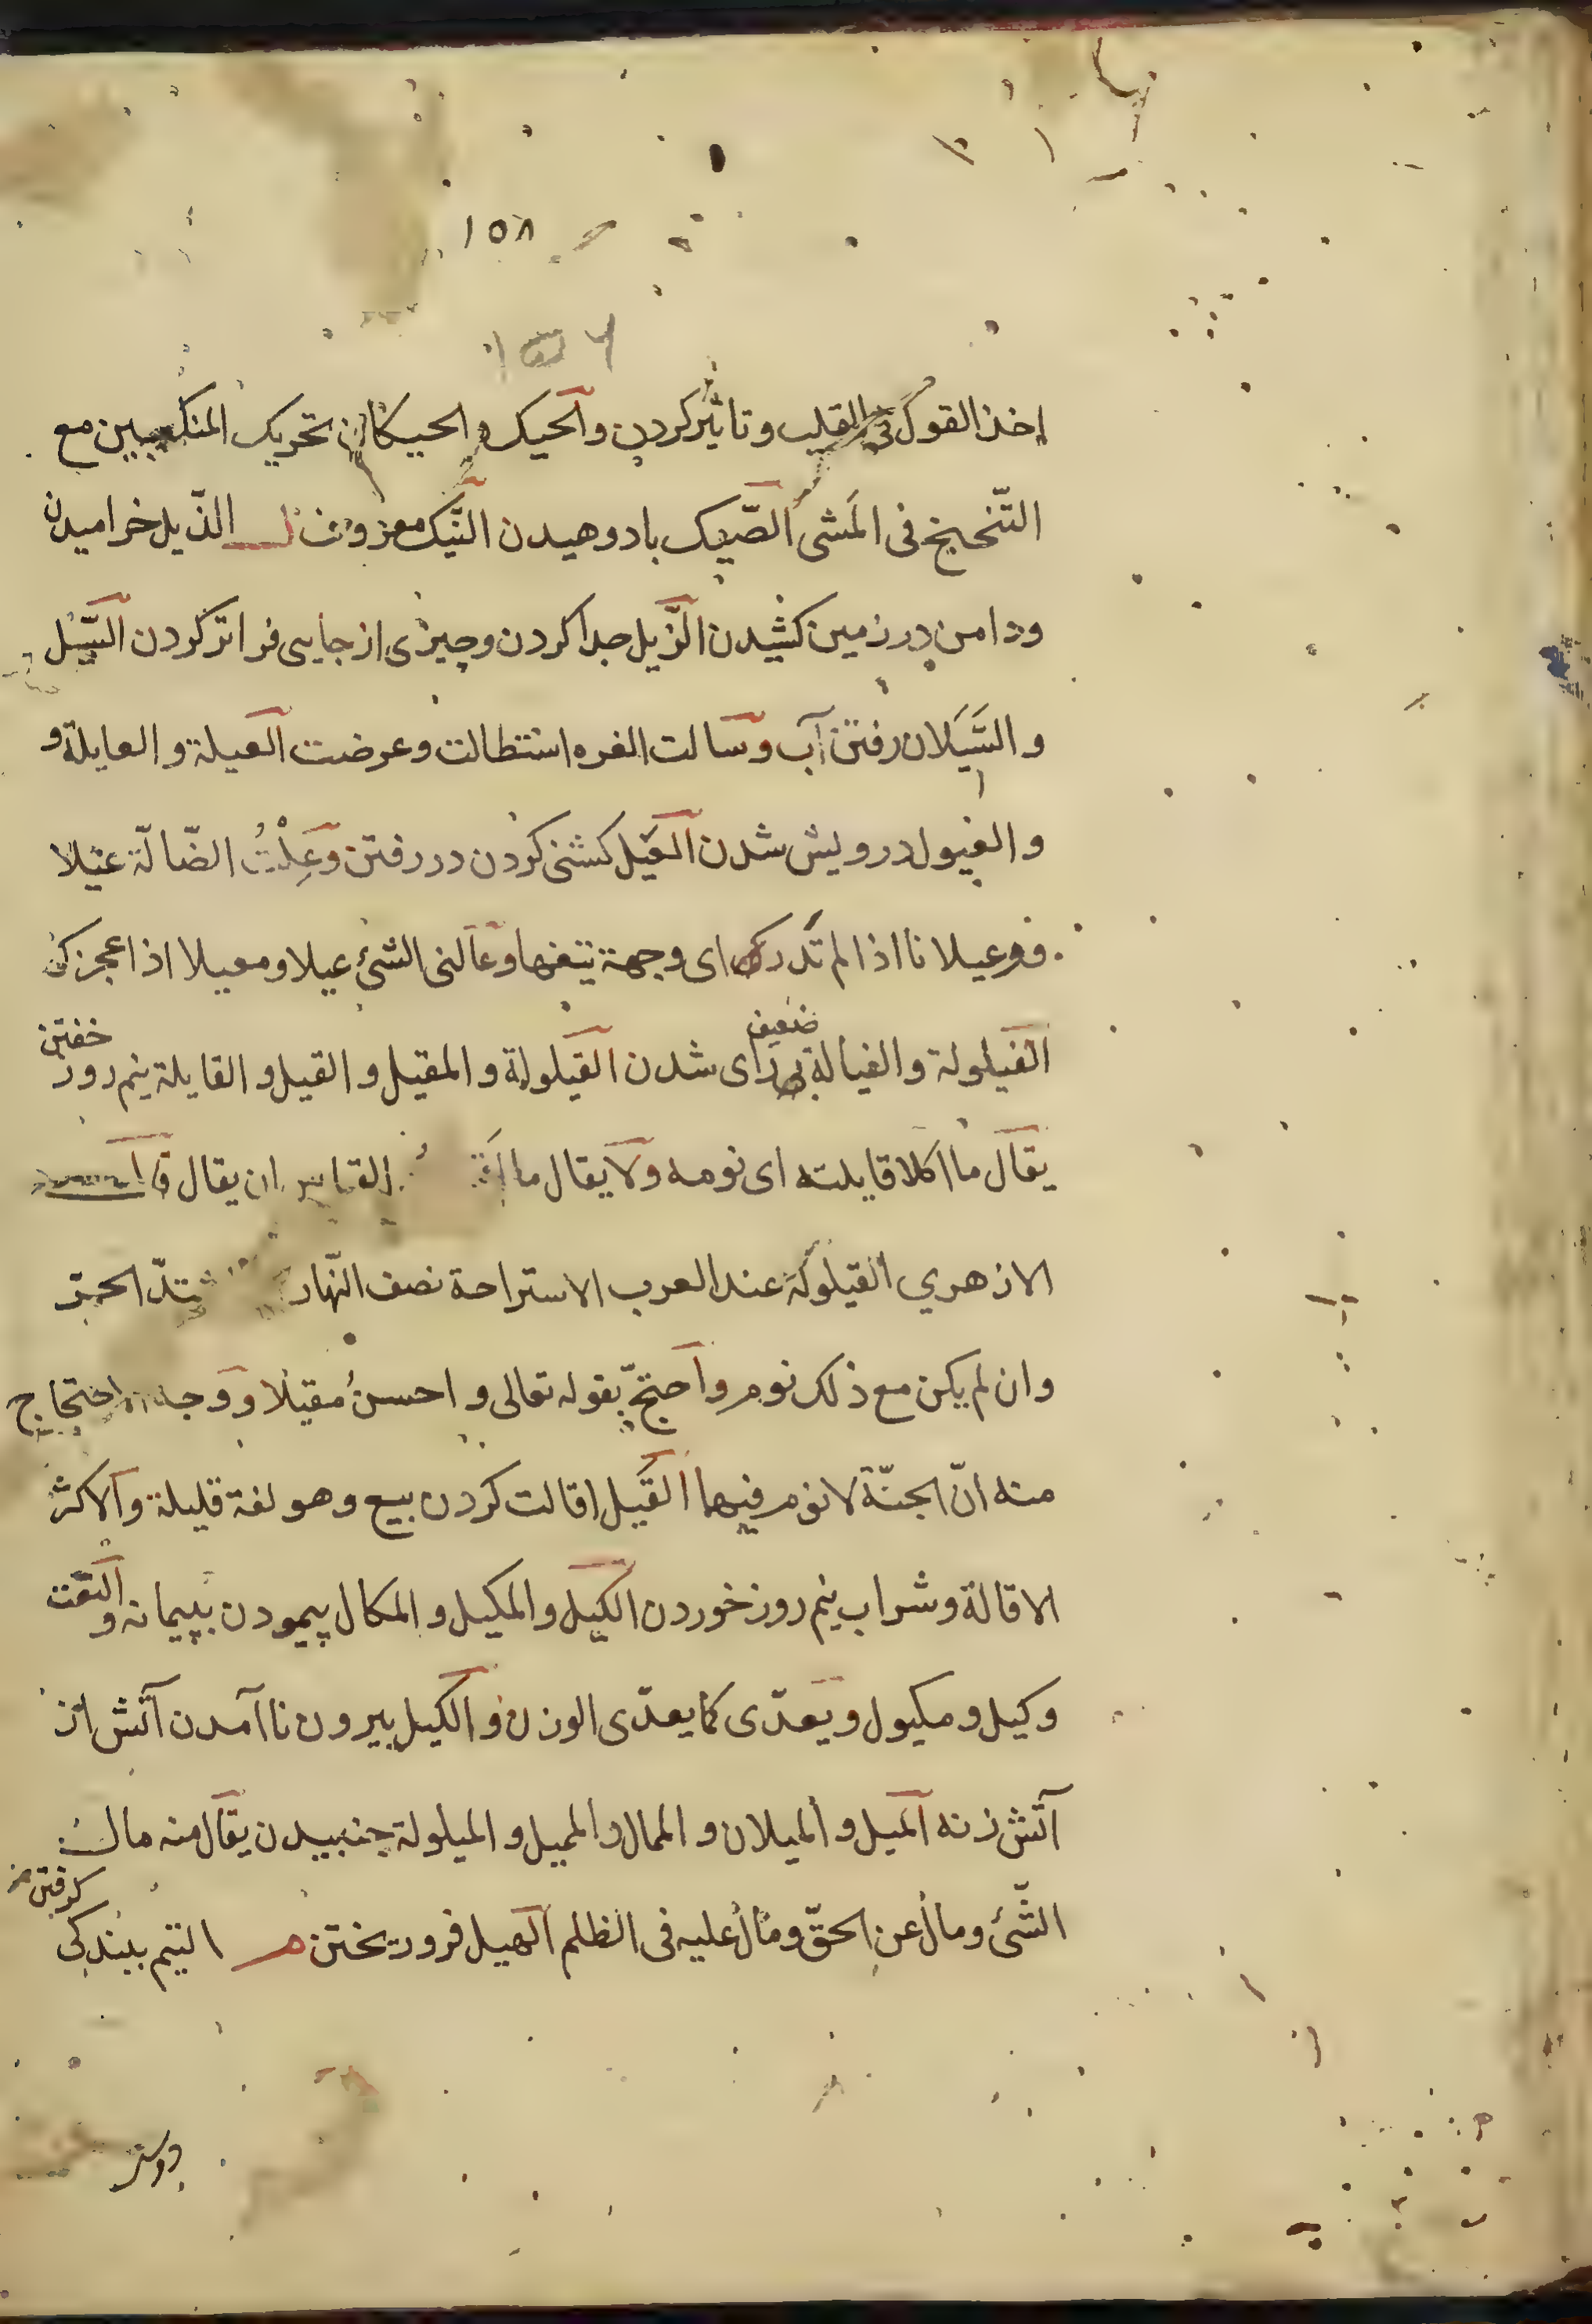 ١٥٨
١٥٦
اخذ القول فى القلب و تاثير كردن و الحيك و الحيكان تحريك المنكبين مع
التنحيخ فى المشى الصّيك باد وهيدن النّيك معروف ل الذّيل خراميدن
و دامن در زمين كشيدن الزّيل جدا كردن و چيزى از جايى فراتر كردن السّيل
و السَّيَلان رفتن آب و سالت الغره استطالت و عرضت العيلة و العايلة و
و العيول درويش شدن العَيل كشنى كردن در رفتن و عِلْتُ الضّالّة عيلا
و عيلانا اذا لم تدر اى وجهة تبغيها و عالنى الشئ عيلا و معيلا اذا اعجزك
الفيلولة و الفيالة ضعيف راى شدن القيلولة و المقيل و القيل و القايلة نيم روز خفتن
يقال ما اكلا قايلته اى نومه و لا يقال ما القياس ان يقال
الازهري القيلولة عند العرب الاستراحة نصف النّهار الحرّ
و ان لم يكن مع ذلك نوم و احتجّ بقوله تعالى و احسنُ مقيلا و وجه احتجاج
منه انّ الجنّة لا نوم فيها القَيل اقالت كردن بيع و هو لغة قليلة و الاكثر
الاقالة و شراب نيم روز خوردن الكيل و المكيل و المكال پيمودن بپيمانه و النعت
و كيل و مكيول و يعدّى كما يعدّى الوزن و الكيل بيرون نا آمدن آتش از
آتش زنه الميل و الميلان و الممال و المميل و الميلولة چنبيدن يقال منه مال
الشّئ و مال عن الحقّ و مال عليه فى الظلم الهيل فرو ريختن م التيم ببندكى كرفتن
دوستى